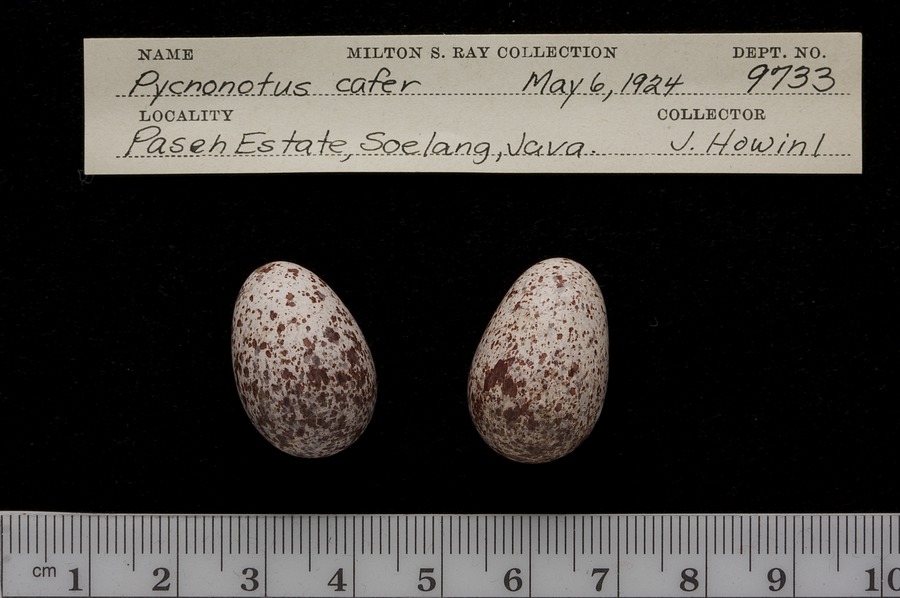 NAME MILTON S. RAY COLLECTION DEPT. NO.
Pycnonotus cafer May 6, 1924 9733
LOCALITY COLLECTOR
Paseh Estate, Soelang, Java. J. Howinl
cm 1 2 3 4 5 6 7 8 9 10